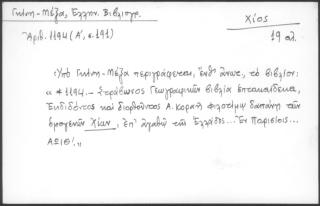 Γκίνη-Μέξα, Ἑλλην. Βιβλιογρ.
Χίος
Ἀριθ. 1194 (Α', σ. 191)
19 αἰ.
Ὑπὸ Γκίνη-Μέξα περιγράφεται, ἔνθ' ἄνωτ., τὸ βιβλίον:
« * 1194.- Στράβωνος Γεωγραφικῶν βιβλία ἑπτακαίδεκα,
Ἐκδιδόντος καὶ διορθοῦντος Α. Κοραῆ φιλοτίμῳ δαπάνῃ τῶν
ὁμογενῶν Χίων, ἐπ' ἀγαθῷ τῆς Ἑλλάδος... Ἐν Παρισίοις...
ΑΩΙΘ'.»